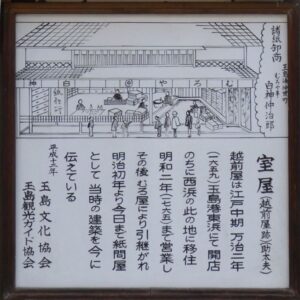 諸紙卸商
白神仲治郎
室屋(越前屋跡)(助太夫)
越前屋は江戸中期 万治二年
(一六五九)玉島港東浜にて開店
のちに西浜の此の地に移住
明和二年(一七六五)まで営業し
その後むろ屋により引継がれ
明治初年より今日まで紙問屋
として 当時の建築を今に
伝えている
平成十三年
玉島文化協会
玉島観光ガイド協会